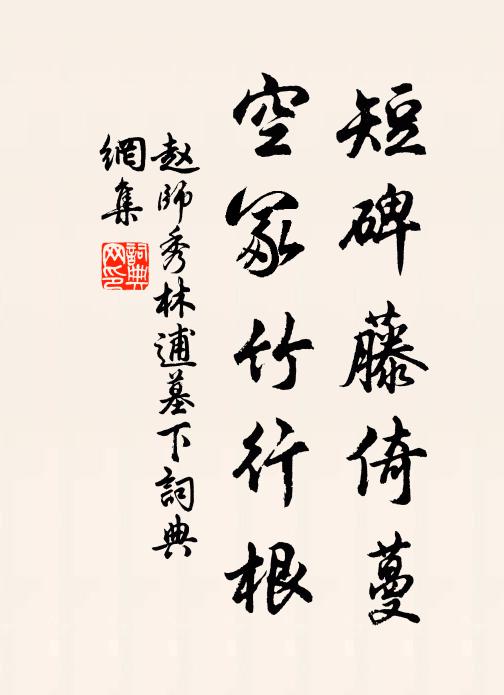 短碑藤倚蔓
空冢竹行根
赵師秀林逋墓下詞典
網集
詞典
网印